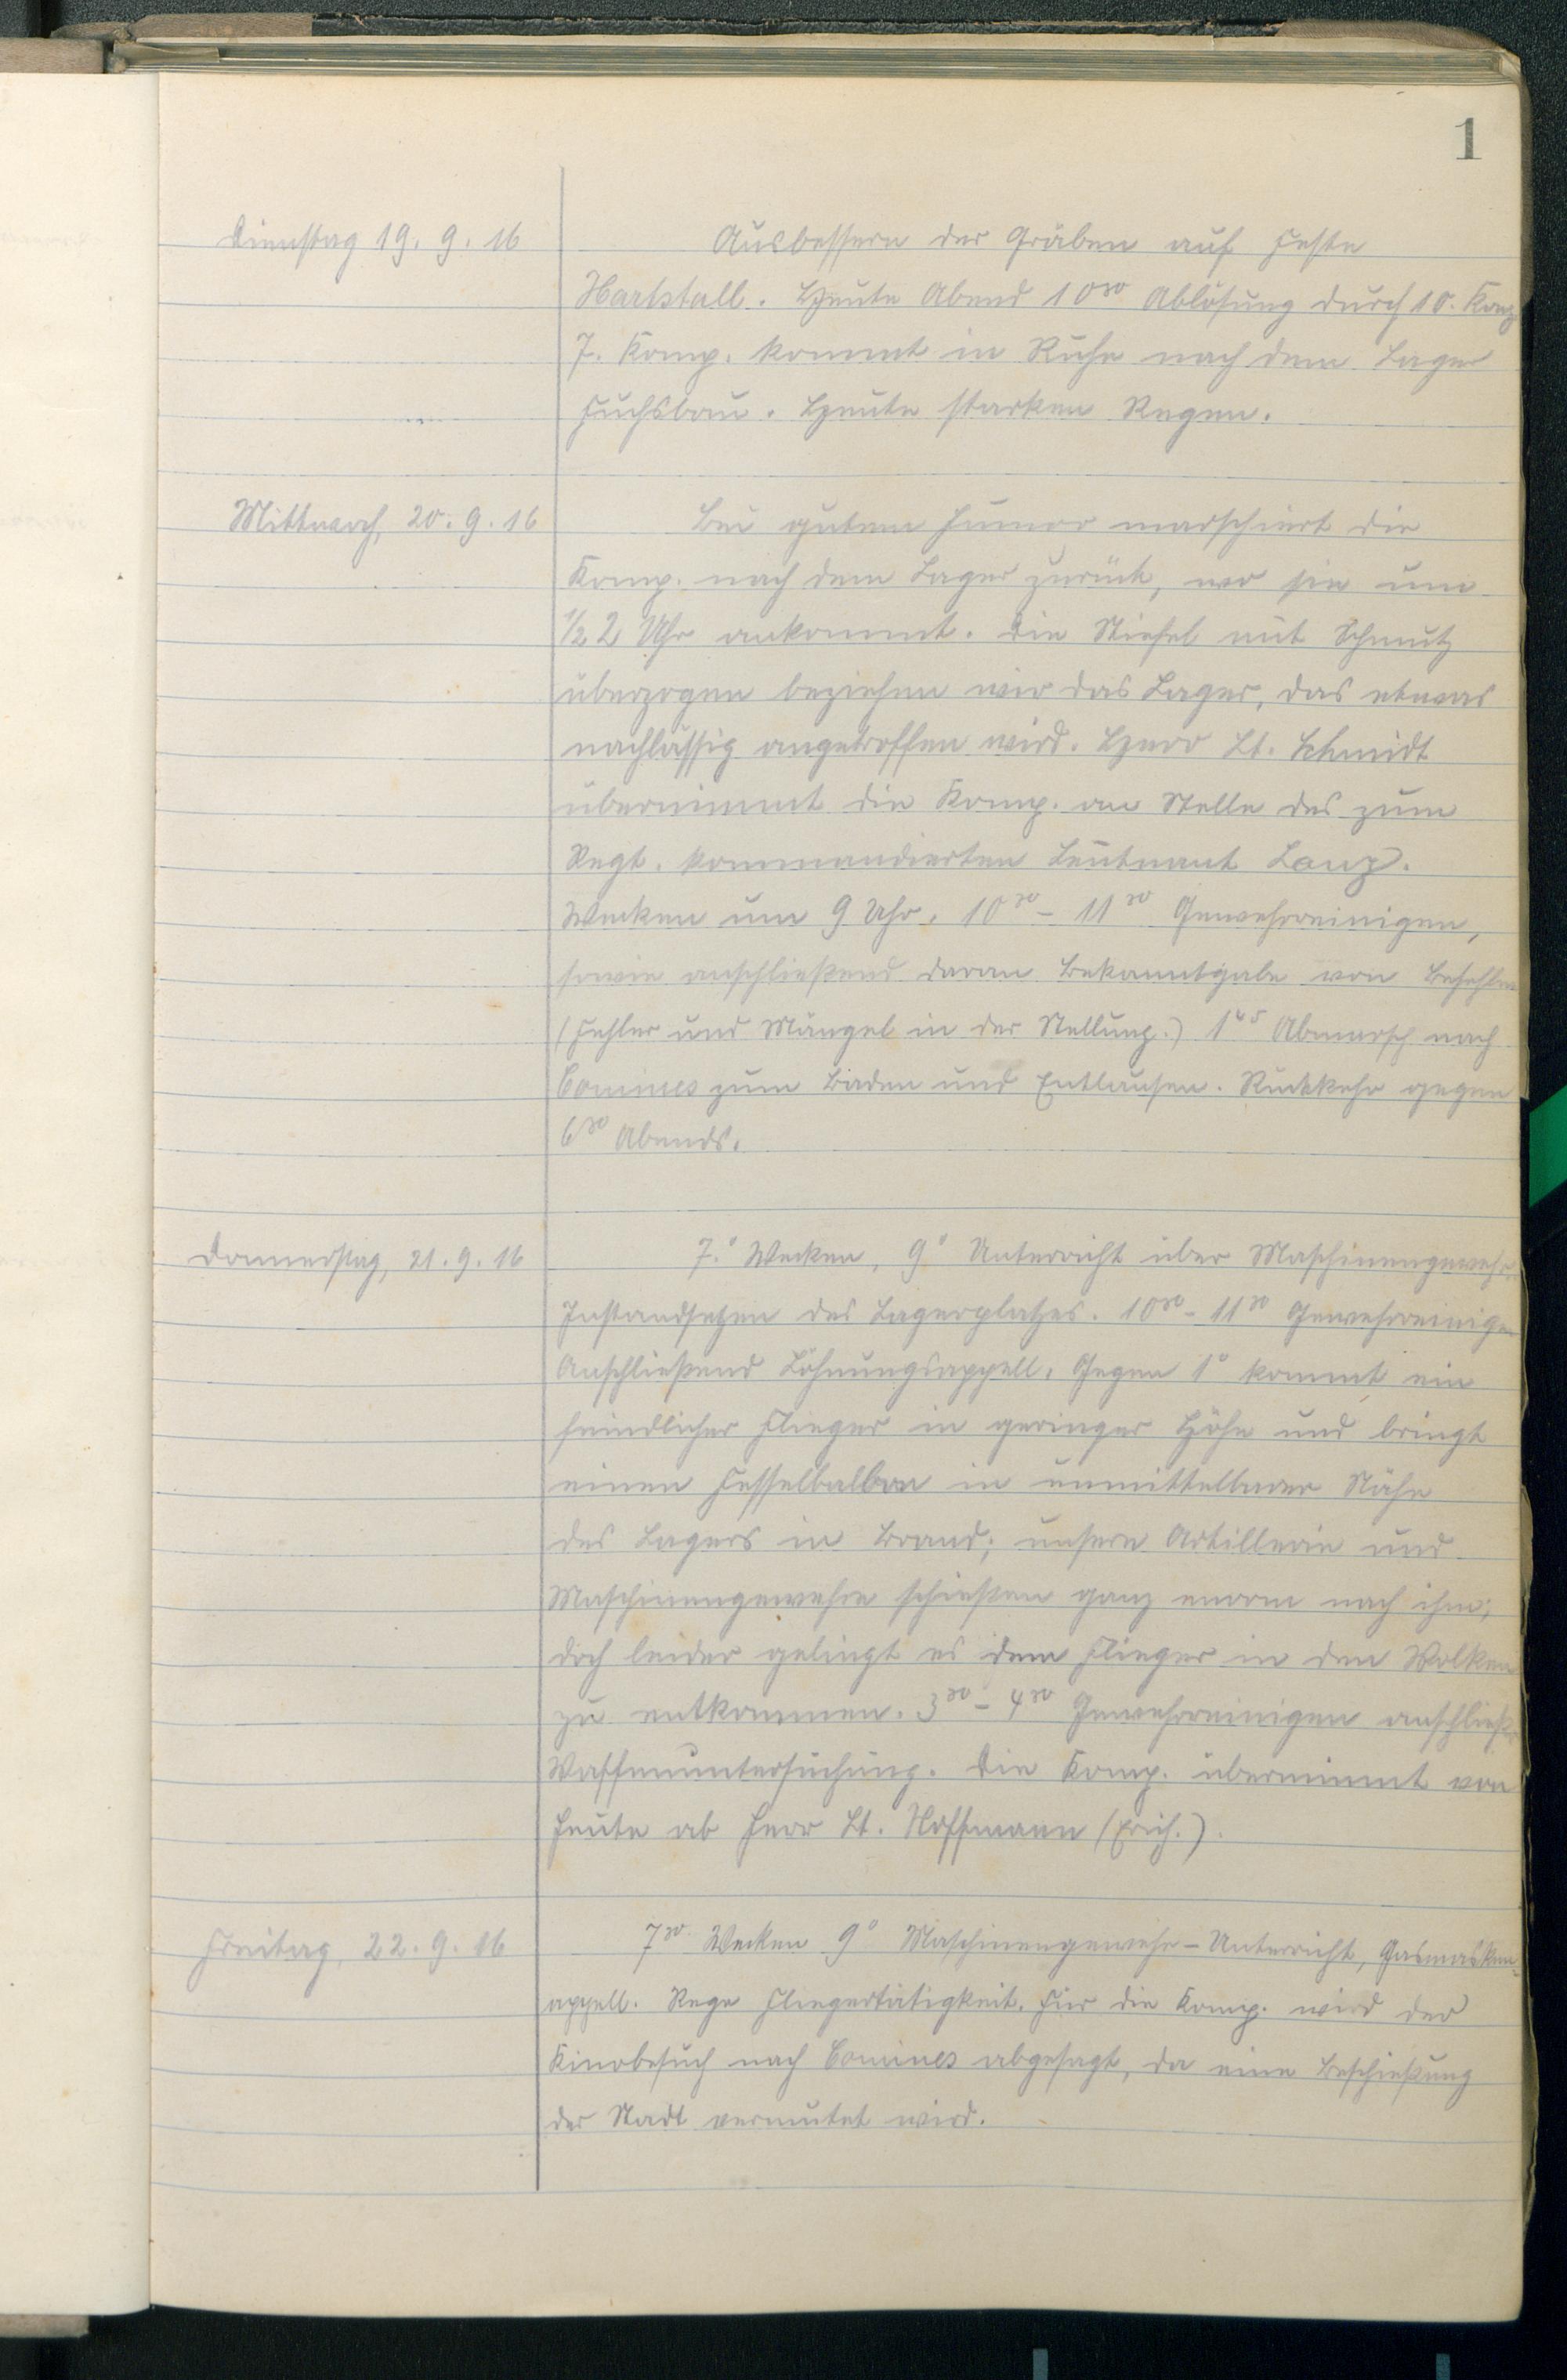 1
Dienstag 19. 9. 16
Ausbessern der Gräben auf Feste
Hartstall. Heute Abend 10³⁰ Ablösung durch 10. Komp
7. Komp. kommt in Ruhe nach dem Lager
Fuchsbau. Heute starken Regen.
Mittwoch, 20. 9. 16
Bei gutem Humor marschiert die
Komp. nach dem Lager zurück, wo sie um
½ 2 Uhr ankommt. Die Stiefel mit Schmutz
überzogen beziehen wir das Lager, das etwas
nachlässig angetroffen wird. Herr Lt. Schmidt
übernimmt die Komp. an Stelle des zum
Regt. kommandierten Leutnant Lanz.
Wecken um 9 Uhr, 10³⁰ - 11³⁰ Gewehrreinigen,
sowie anschließend daran Bekanntgabe von Befehlen
(Fehler und Mängel in der Stellung.) 1⁴⁵ Abmarsch nach
Comines zum Baden und Entlausen. Rückkehr gegen
6³⁰ Abends.
Donnerstag, 21. 9. 16
7.⁰ Wecken, 9⁰ Unterricht über Maschinengewehr,
Instandsetzen des Lagerplatzes. 10³⁰ - 11³⁰ Gewehrreinigen
Anschließend Löhnungsappell, Gegen 1⁰ kommt ein
feindlicher Flieger in geringer Höhe und bringt
einen Fesselballon in unmittelbarer Nähe
des Lagers in Brand; unsere Artillerie und
Maschinengewehre schießen ganz enorm nach ihm;
doch leider gelingt es dem Flieger in den Wolken
zu entkommen. 3³⁰ - 4³⁰ Gewehrreinigen anschließ.
Waffenuntersuchung. Die Komp. übernimmt von
heute ab Herr Lt. Hoffmann (Erich.).
Freitag, 22. 9. 16
7³⁰ Wecken 9⁰ Maschinengewehr-Unterricht, Gasmasken-
appell. Rege Fliegertätigkeit. Für die Komp. wird der
Kinobesuch nach Comines abgesagt, da eine Beschießung
der Stadt vermutet wird.